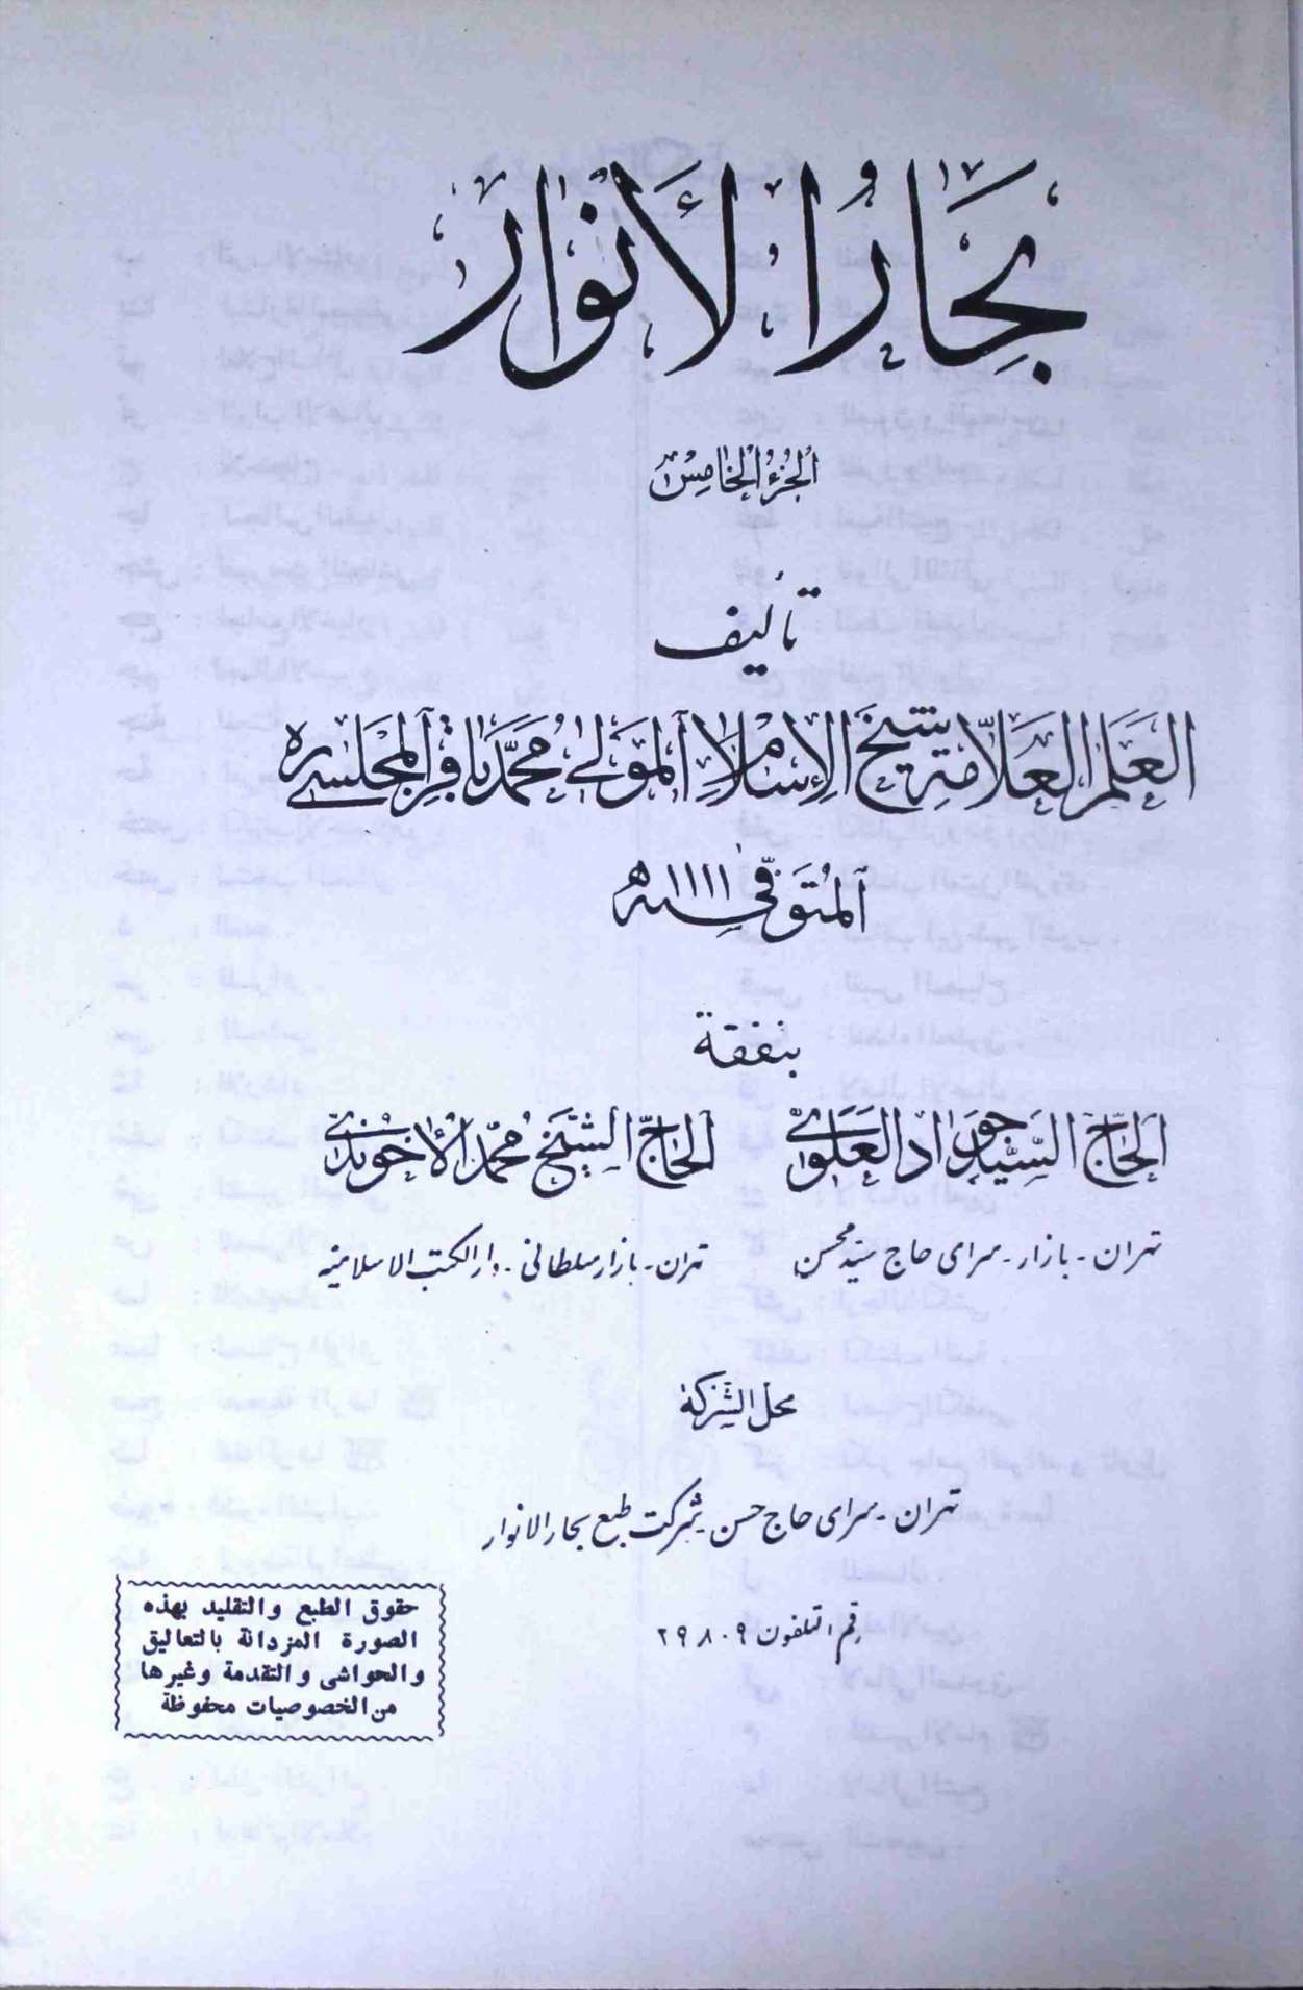 بِحَارُ الأَنْوَار
الجُزْءُ الخَامِسُ
تأليف
العَلَمِ العَلاّمَةِ شَيْخِ الإِسْلامِ المَوْلى مُحَمَّد بَاقِر المَجْلِسِي ره
المُتَوَفّى سنة ١١١١ هـ
بنفقة
الحَاجّ السَّيِّد جَوَاد العَلَوِي
الحَاجّ الشَّيْخ مُحَمَّد الآخُونْدِي
تهران - بازار - سرای حاج سید محسن
تهران - بازار سلطانی - دارالکتب الاسلامیة
محل الشركة
تهران - سرای حاج حسن - شرکت طبع بحار الانوار
رقم التلفون ٢٩٨٠٩
حقوق الطبع والتقليد بهذه
الصورة المزدانة بالتعاليق
والحواشى والتقدمة وغيرها
من الخصوصيات محفوظة